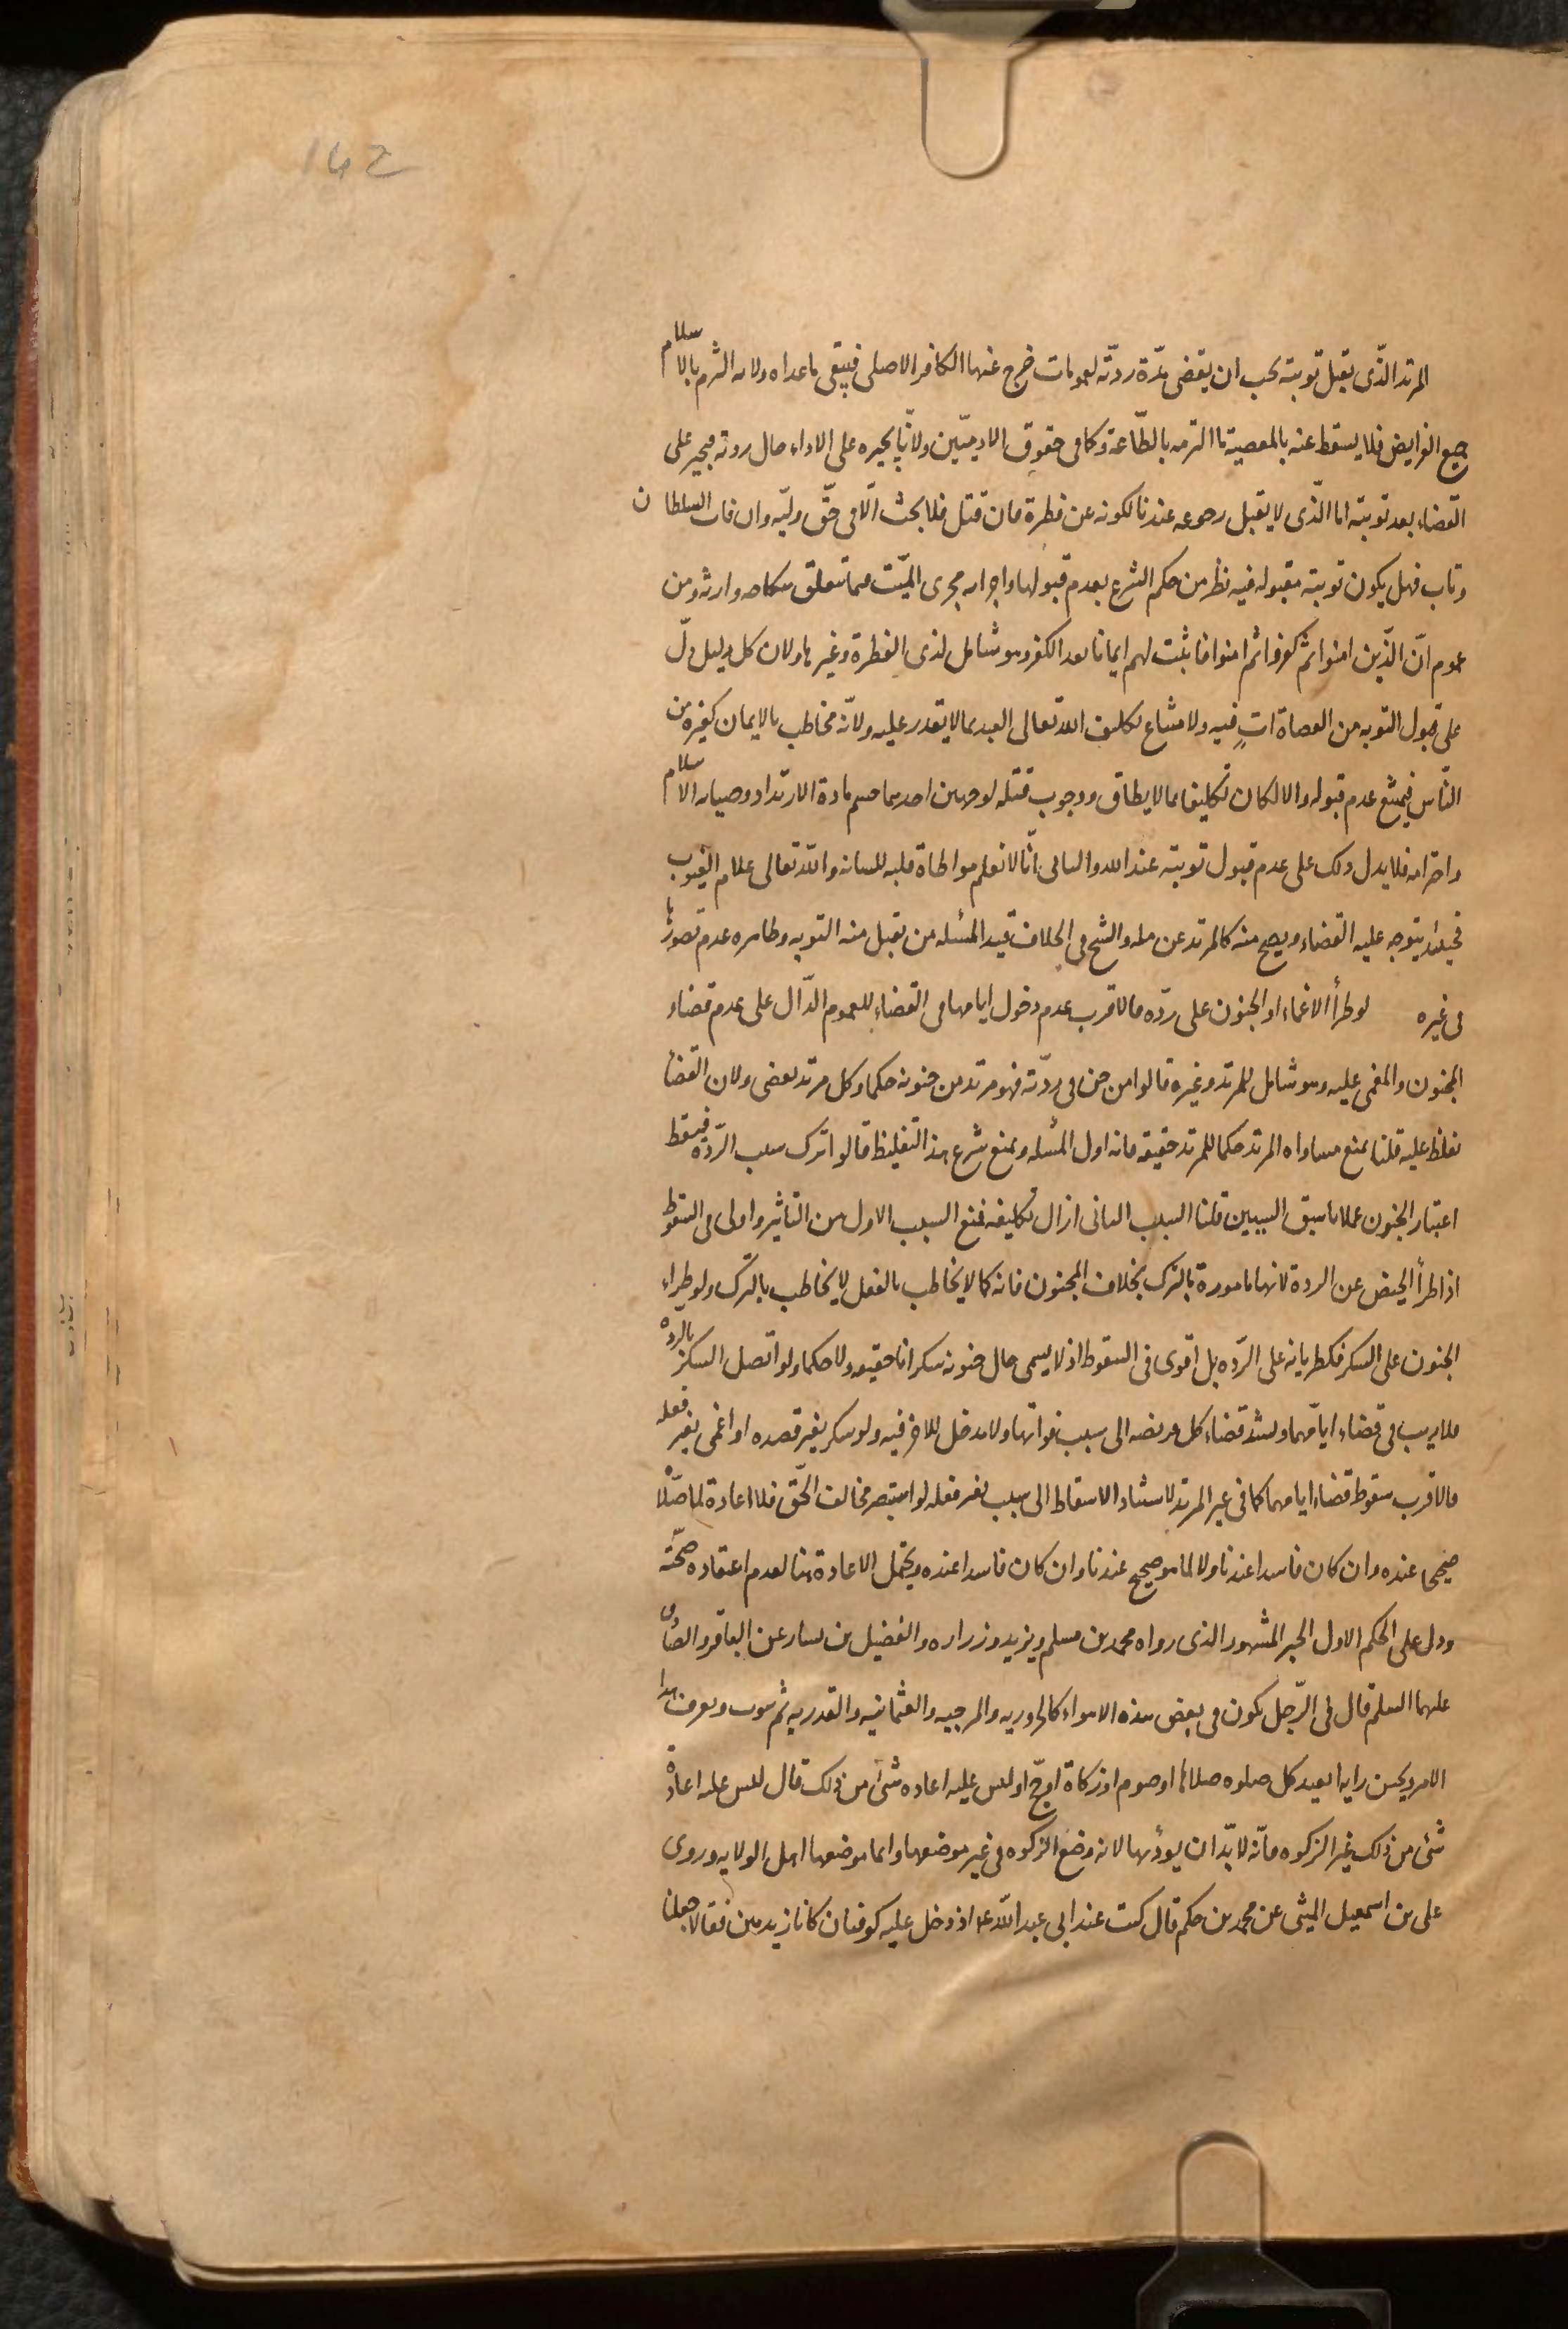 142
المرتد الّذى يقبل توبته يجب ان يقضى مدّة ردّته لعمومات خرج عنها الكافر الاصلى فيبقى ماعداه ولانه التزم بالاسلام
جميع الفرايض فلا يسقط عنه بالمعصية ما التزمه بالطّاعة وكما فى حقوق الادميّين ولانّا نجبره على الاداء حال ردته فيجبر على
القضاء بعد توبته اما الّذى لا يقبل رجوعه عندنا لكونه عن فطرة فان قتل فلا بحث الّا فى حقّ وليّه وان فات السلطان
وتاب فهل يكون توبته مقبوله فيه نظر من حكم الشرع بعدم قبولها واجرائه مجرى الميّت فيما يتعلق بنكاحه وارثه ومن
عموم انّ الّذين امنوا ثم كفروا ثم امنوا فاثبت لهم ايمانا بعد الكفر وهو شامل لذى الفطرة وغيرها ولان كل دليل دلّ
على قبول التوبه من العصاة اتٍ فيه ولامتناع تكليف الله تعالى العبد بما لا يقدر عليه ولانّه مخاطب بالايمان كغيره من
النّاس فيمتنع عدم قبوله والا لكان تكليفا بما لا يطاق ووجوب قتله لوجهين احدهما حسم مادة الارتداد وصيانه الاسلام
واحترامه فلا يدل ذلك على عدم قبول توبته عند الله والثانى انّا لا نعلم مواطاة قلبه للسانه والله تعالى علام الغيوب
فحينئذ يتوجه عليه القضاء ويصح منه كالمرتد عن مله والشيخ فى الخلاف قيد المسئله من يقبل منه التوبه وظاهره عدم تصورها
فى غيره لو طرأ الاغماء او الجنون على ردّه فالاقرب عدم دخول ايامهما فى القضاء للعموم الدّال على عدم قضاء
المجنون والمغمى عليه وهو شامل للمرتد وغيره قالوا من جن فى ردّته فهو مرتد من جنونه حكما وكل مرتد يقضى ولان القضاء
تغلظ عليه قلنا نمنع مساواه المرتد حكما للمرتد حقيقه فانه اول المسئله ونمنع شرع هذا التغليظ قالوا ترك بسبب الردّه فيسقط
اعتبار الجنون عملا باسبق السببين قلنا السبب الثانى ازال تكليفه فمنع السبب الاول من التاثير واولى فى السقوط
اذا طرأ الحيض عن الردة لانها مامورة بالترك بخلاف المجنون فانه كما لا يخاطب بالفعل لا يخاطب بالترك ولو طراء
الجنون على السكر فكطريانه على الردّه بل اقوى فى السقوط اذ لا يسمى حال جنونه سكرانا حقيقه ولا حكما ولو اتصل السكر بالرده
فلا ريب فى قضاء ايّامهما ويسند قضاء كل فريضه الى سبب فواتها ولا مدخل للاخر فيه ولو سكر بغير قصده او اغمى بغير فعله
فالاقرب سقوط قضاء ايامهما كما فى غير المرتد لاستناد الاسقاط الى سبب بغير فعله لو استبصر مخالف الحّق فلا اعادة لما صلّاه
صحيحا عنده وان كان فاسدا عندنا ولا لما هو صحيح عندنا وان كان فاسدا عنده ويحتمل الاعادة هنا لعدم اعتقاده صحّته
ودل على الحكم الاول الخبر المشهور الذى رواه محمد بن مسلم وبريد وزراره والفضيل بن يسار عن الباقر والصادق
عليهما السلم قال فى الرّجل يكون فى بعض هذه الاهواء كالحروريه والمرجيه والعثمانيه والقدريه ثم يتوب ويعرف هذا
الامر ويحسن رايه ايعيد كل صلوه صلاها او صوم او زكاة او حجّ او ليس عليه اعاده شئ من ذلك قال ليس عليه اعادة
شئ من ذلك غير الزكوه فانّه لا بدّ ان يوديها لانه وضع الزكوه فى غير موضعها وانما موضعها اهل الولايه وروى
على بن اسمعيل الميثمى عن محمد بن حكم قال كنت عند ابى عبد الله ع اذ دخل عليه كوفيان كانا زيديين فقالا جعلنا